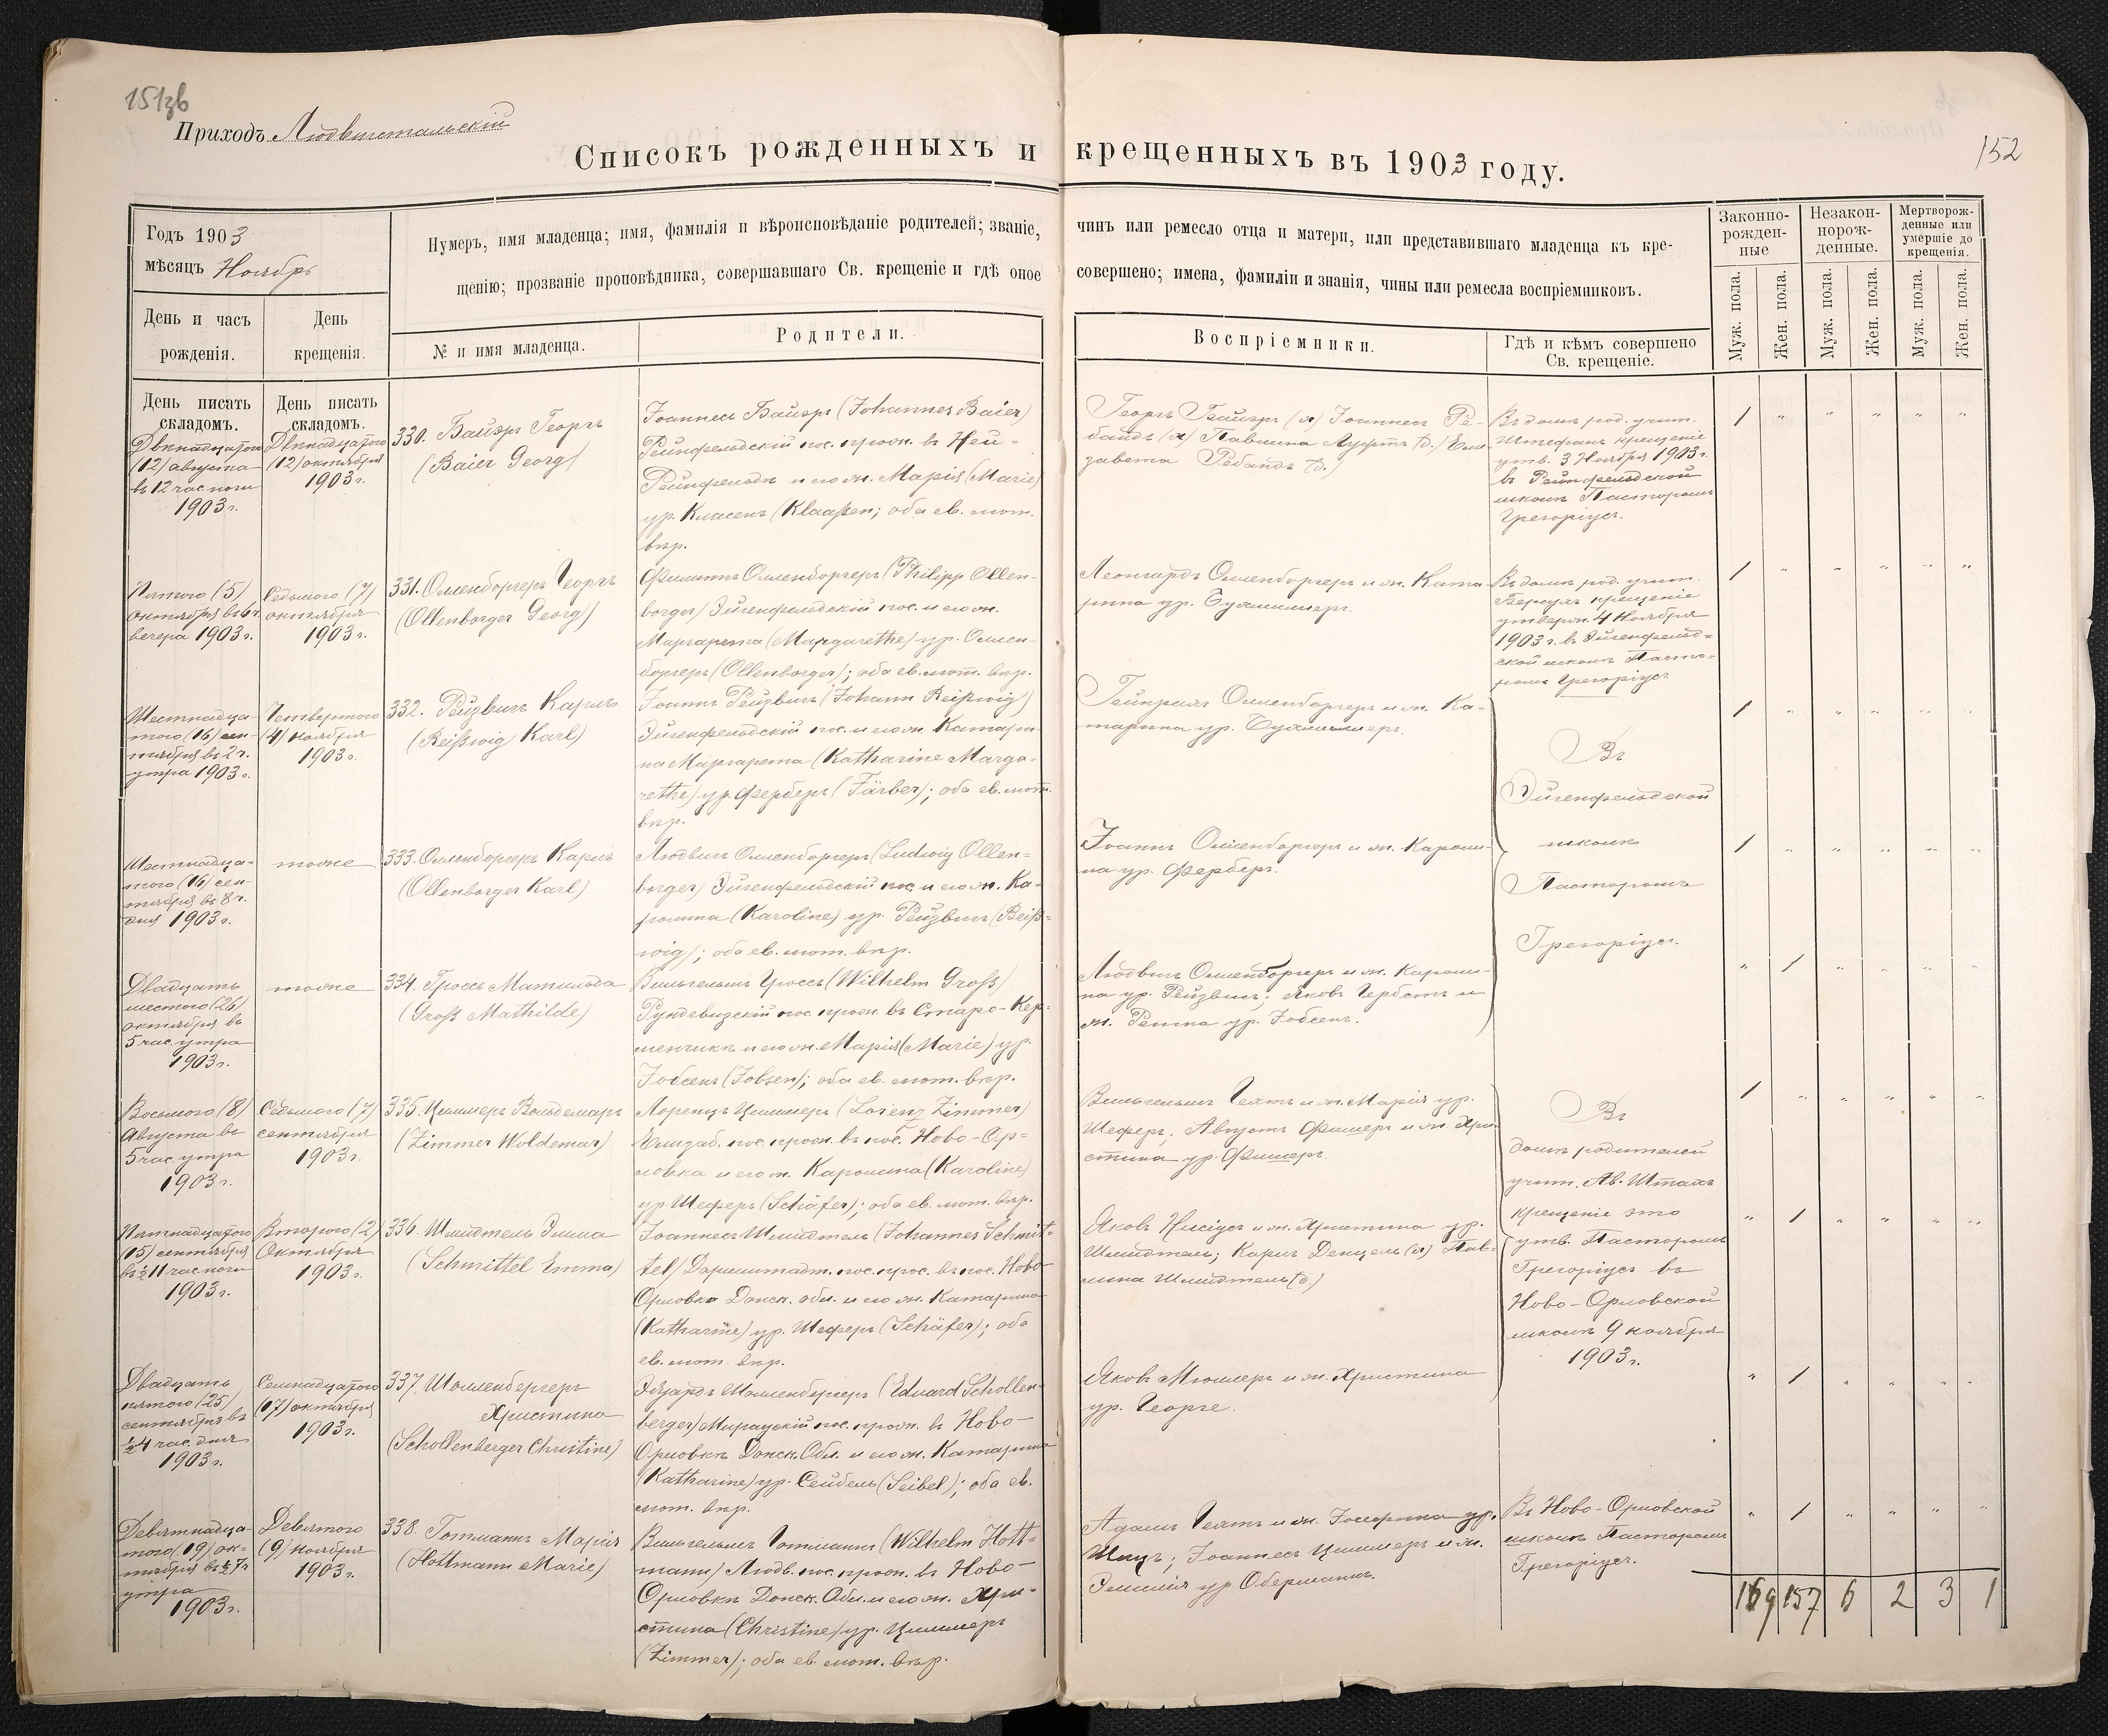 151зв
Приходъ Людвигстальскій
152
Списокъ рожденныхъ и крещенныхъ въ 1903 году.
Годъ 1903
мѣсяцъ Ноябрь
Нумеръ, имя младенца; имя, фамилія и вѣроисповѣданіе родителей; званіе, чинъ или ремесло отца и матери, или представившаго младенца къ кре-
щенію; прозваніе проповѣдника, совершавшаго Св. крещеніе и гдѣ оное совершено; имена, фамиліи и знанія, чины или ремесла воспріемниковъ.
Законно-
рожден-
ные
Незакон-
норож-
денные.
Мертворож-
денные или
умершіе до
крещенія.
День и часъ
рожденія.
День
крещенія.
№ и имя младенца.
Родители.
Воспріемники.
Гдѣ и кѣмъ совершено
Св. крещеніе.
Муж. пола.
Жен. пола.
Муж. пола.
Жен. пола.
Муж. пола.
Жен. пола.
День писать
складомъ.
День писать
складомъ.
Двѣнадцатого
(12) августа
въ 12 час. ночи
1903 г.
Двѣнадцатого
(12) октября
1903 г.
330. Байэръ Георгъ
(Baier Georg)
Іоаннесъ Байэръ (Johannes Baier)
Рейнфельдскій пос. прож. въ Ней-
Рейнфельдѣ и его ж. Марія (Marie)
ур. Класенъ (Klaaßen; оба ев. лют.
вѣр.
Георгъ Байэръ (х) Іоаннесъ Ре-
бандъ (х) Павлина Луфтъ (д.) Ели-
завета Ребандъ (д.)
Въ домѣ род. учит.
Штефанъ крещеніе
утв. 3 Ноября 1903 г.
въ Рейнфельдской
школѣ Пасторомъ
Грегоріусъ.
1 " " " " "
Пятого (5)
октября въ 6 ч.
вечера 1903 г.
Седьмого (7)
октября
1903 г.
331. Олленборгеръ Георгъ
(Ollenborger Georg)
Филиппъ Олленборгеръ (Philipp Ollen-
borger) Эйгенфельдскій пос. и его ж.
Маргарета (Margarethe) ур. Оллен-
боргеръ (Ollenborger); оба ев. лют. вѣр.
Леонгардъ Олленборгеръ и ж. Ката-
рина ур. Буллмеръ.
Въ домѣ род. учит.
крещеніе
утвержд. 4 Ноября
1903 г. въ Эйгенфельд-
ской школѣ Пасто-
ромъ Грегоріусъ
1 " " " " "
Шестнадца-
того (16) сен-
тября въ 2 ч.
утра 1903 г.
Четвертого
(4) ноября
1903 г.
332. Рейзвигъ Карлъ
(Reißwig Karl)
Іоаннъ Рейзвигъ (Johann Reißwig)
Эйгенфельдскій пос. и его ж. Катари-
на Маргарета (Katharine Marga-
rethe) ур. Ферберъ (Färber); оба ев. лют.
вѣр.
Гейнрихъ Олленборгеръ и ж. Ка-
тарина ур. Буллмеръ.
Въ
Эйгенфельдской
школѣ
Пасторомъ
Грегоріусъ.
1 " " " " "
Шестнадца-
того (16) сен-
тября въ 8 ч.
дня 1903 г.
тоже
333. Олленборгеръ Карлъ
(Ollenborger Karl)
Людвигъ Олленборгеръ (Ludwig Ollen-
borger) Эйгенфельдскій пос. и его ж. Ка-
ролина (Karoline) ур. Рейзвигъ (Reiß-
wig); оба ев. лют. вѣр.
Іоаннъ Олленборгеръ и ж. Кароли-
на ур. Ферберъ.
1 " " " " "
Двадцать
шестого (26)
октября въ
5 час. утра
1903 г.
тоже
334. Гроссъ Матильда
(Groß Mathilde)
Вильгельмъ Гроссъ (Wilhelm Groß)
Рундевизскій пос. прож. въ Старо-Кер-
менчикѣ и его ж. Марія (Marie) ур.
Іобсенъ (Jobsen); оба ев. лют. вѣр.
Людвигъ Олленборгеръ и ж. Кароли-
на ур. Рейзвигъ; Яковъ Гербстъ и
ж. ур. Іобсенъ.
" 1 " " " "
Восьмого (8)
Августа въ
5 час. утра
1903 г.
Седьмого (7)
сентября
1903 г.
335. Циммеръ Вольдемаръ
(Zimmer Woldemar)
Лоренцъ Циммеръ (Lorenz Zimmer)
Елизаб. пос. прож. въ пос. Ново-Ор-
ловка и его ж. Каролина (Karoline)
ур Шеферъ (Schäfer); оба ев. лют. вѣр.
Вильгельмъ Гехтъ и ж. Марія ур.
Шеферъ; Августъ Фишеръ и ж. Хри-
стина ур. Фишеръ.
Въ
домѣ родителей
учит. Ав. Шталь
крещеніе это
утв. Пасторомъ
Грегоріусъ въ
Ново-Орловской
школѣ 9 ноября
1903 г.
1 " " " " "
Пятнадцатого
(15) сентября
въ ½ 11 час. ночи
1903 г.
Второго (2)
Октября
1903 г.
336. Шмидтель Эмма
(Schmittel Emma)
Іоаннесъ Шмидтель (Johannes Schmit-
tel) Дармштадт. пос. прож. въ пос. Ново
Орловка Донск. обл. и его ж. Катарина
(Katharine) ур. Шеферъ (Schäfer); оба
ев. лют. вѣр.
Яковъ Нисіусъ и ж. Христина ур.
Шмидтель; Карлъ Денцель (х) Пав-
лина Шмидтель (д.)
" 1 " " " "
Двадцать
пятого (25)
сентября въ
½ 4 час. дня
1903 г.
Семнадцатого
(17) октября
1903 г.
337. Шолленбергеръ
Христина
(Schollenberger Christine)
Эдуардъ Шолленбергеръ (Eduard Schollen-
berger) Мираускій пос. прож. въ Ново-
Орловкѣ Донск. Обл. и его ж. Катарина
(Katharine) ур. Сейбель (Seibel); оба ев.
лют. вѣр.
Яковъ Мюллеръ и ж. Христина
ур. Георге.
" 1 " " " "
Девятнадца-
того (19) ок-
тября въ ½ 7 ч.
утра
1903 г.
Девятого
(9) ноября
1903 г.
338. Готманнъ Марія
(Hottmann Marie)
Вильгельмъ Готманнъ (Wilhelm Hott-
mann) Людв. пос. прож. въ Ново
Орловкѣ Донск. Обл. и его ж. Хри-
стина (Christine) ур. Циммеръ
(Zimmer); оба ев. лют. вѣр.
Адамъ Гехтъ и ж. Іозефина ур.
Іоаннесъ Циммеръ и ж.
Эмилія ур. Оберманнъ.
Въ Ново-Орловской
школѣ Пасторомъ
Грегоріусъ.
" 1 " " " "
169 157 6 2 3 1